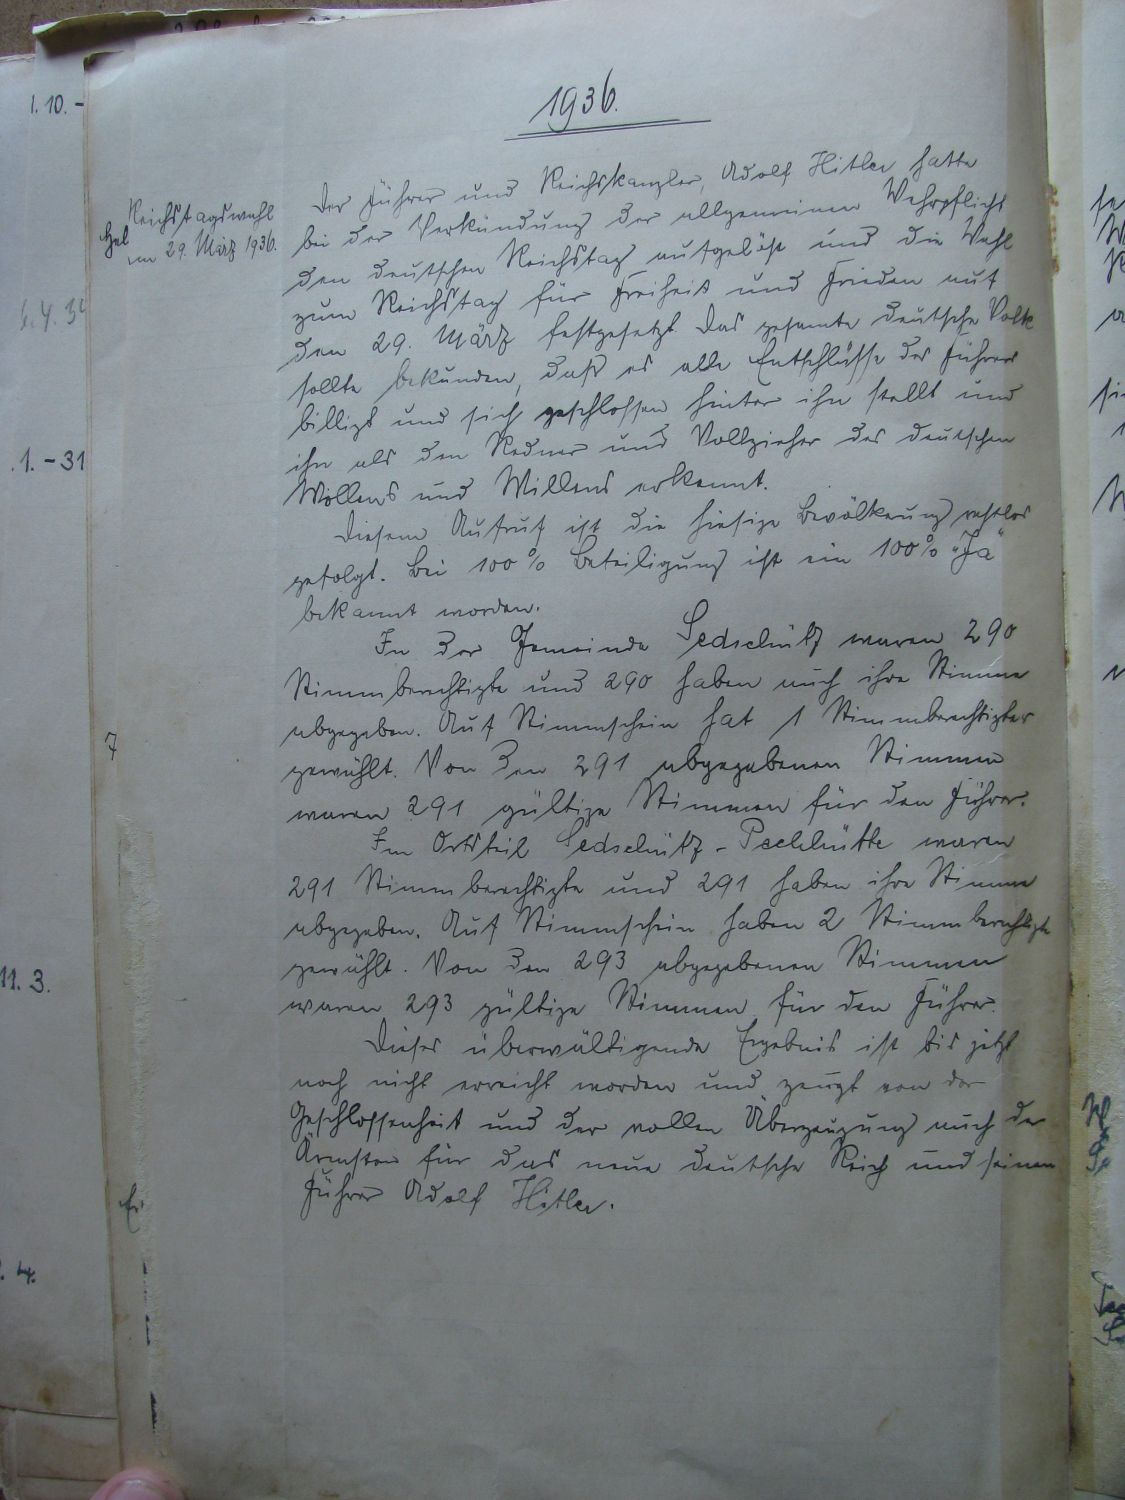 1936.
Reichstagswahl
am 29. März 1936.
Der Führer und Reichskanzler, Adolf Hitler hatte
bei der Verkündung der allgemeinen Wehrpflicht
den deutschen Reichstag aufgelöst und die Wahl
zum Reichstag für Freiheit und Frieden auf
den 29. März festgesetzt. Das gesamte deutsche Volk
sollte bekunden, daß es alle Entschlüsse des Führers
billigt und sich geschlossen hinter ihn stellt und
ihn als den Redner und Vollzieher des deutschen
Wollens und Willens erkennt.
Diesem Aufruf ist die hiesige Bevölkerung restlos
gefolgt. Bei 100% Beteiligung ist ein 100% „Ja“
bekannt worden.
In der Gemeinde Sedschütz waren 290
Stimmberechtigte und 290 haben auch ihre Stimme
abgegeben. Auf Stimmschein hat 1 Stimmberechtigter
gewählt. Von den 291 abgegebenen Stimmen
waren 291 gültige Stimmen für den Führer.
Im Ortsteil Sedschütz-Pechhütte waren
291 Stimmberechtigte und 291 haben ihre Stimme
abgegeben. Auf Stimmschein haben 2 Stimmberechtigte
gewählt. Von den 293 abgegebenen Stimmen
waren 293 gültige Stimmen für den Führer.
Dieses überwältigende Ergebnis ist bis jetzt
noch nicht erreicht worden und zeugt von der
Geschlossenheit und der vollen Überzeugung auch der
Ärmsten für das neue deutsche Reich und seinen
Führer Adolf Hitler.
1.10.-
.1.-31
11.3.